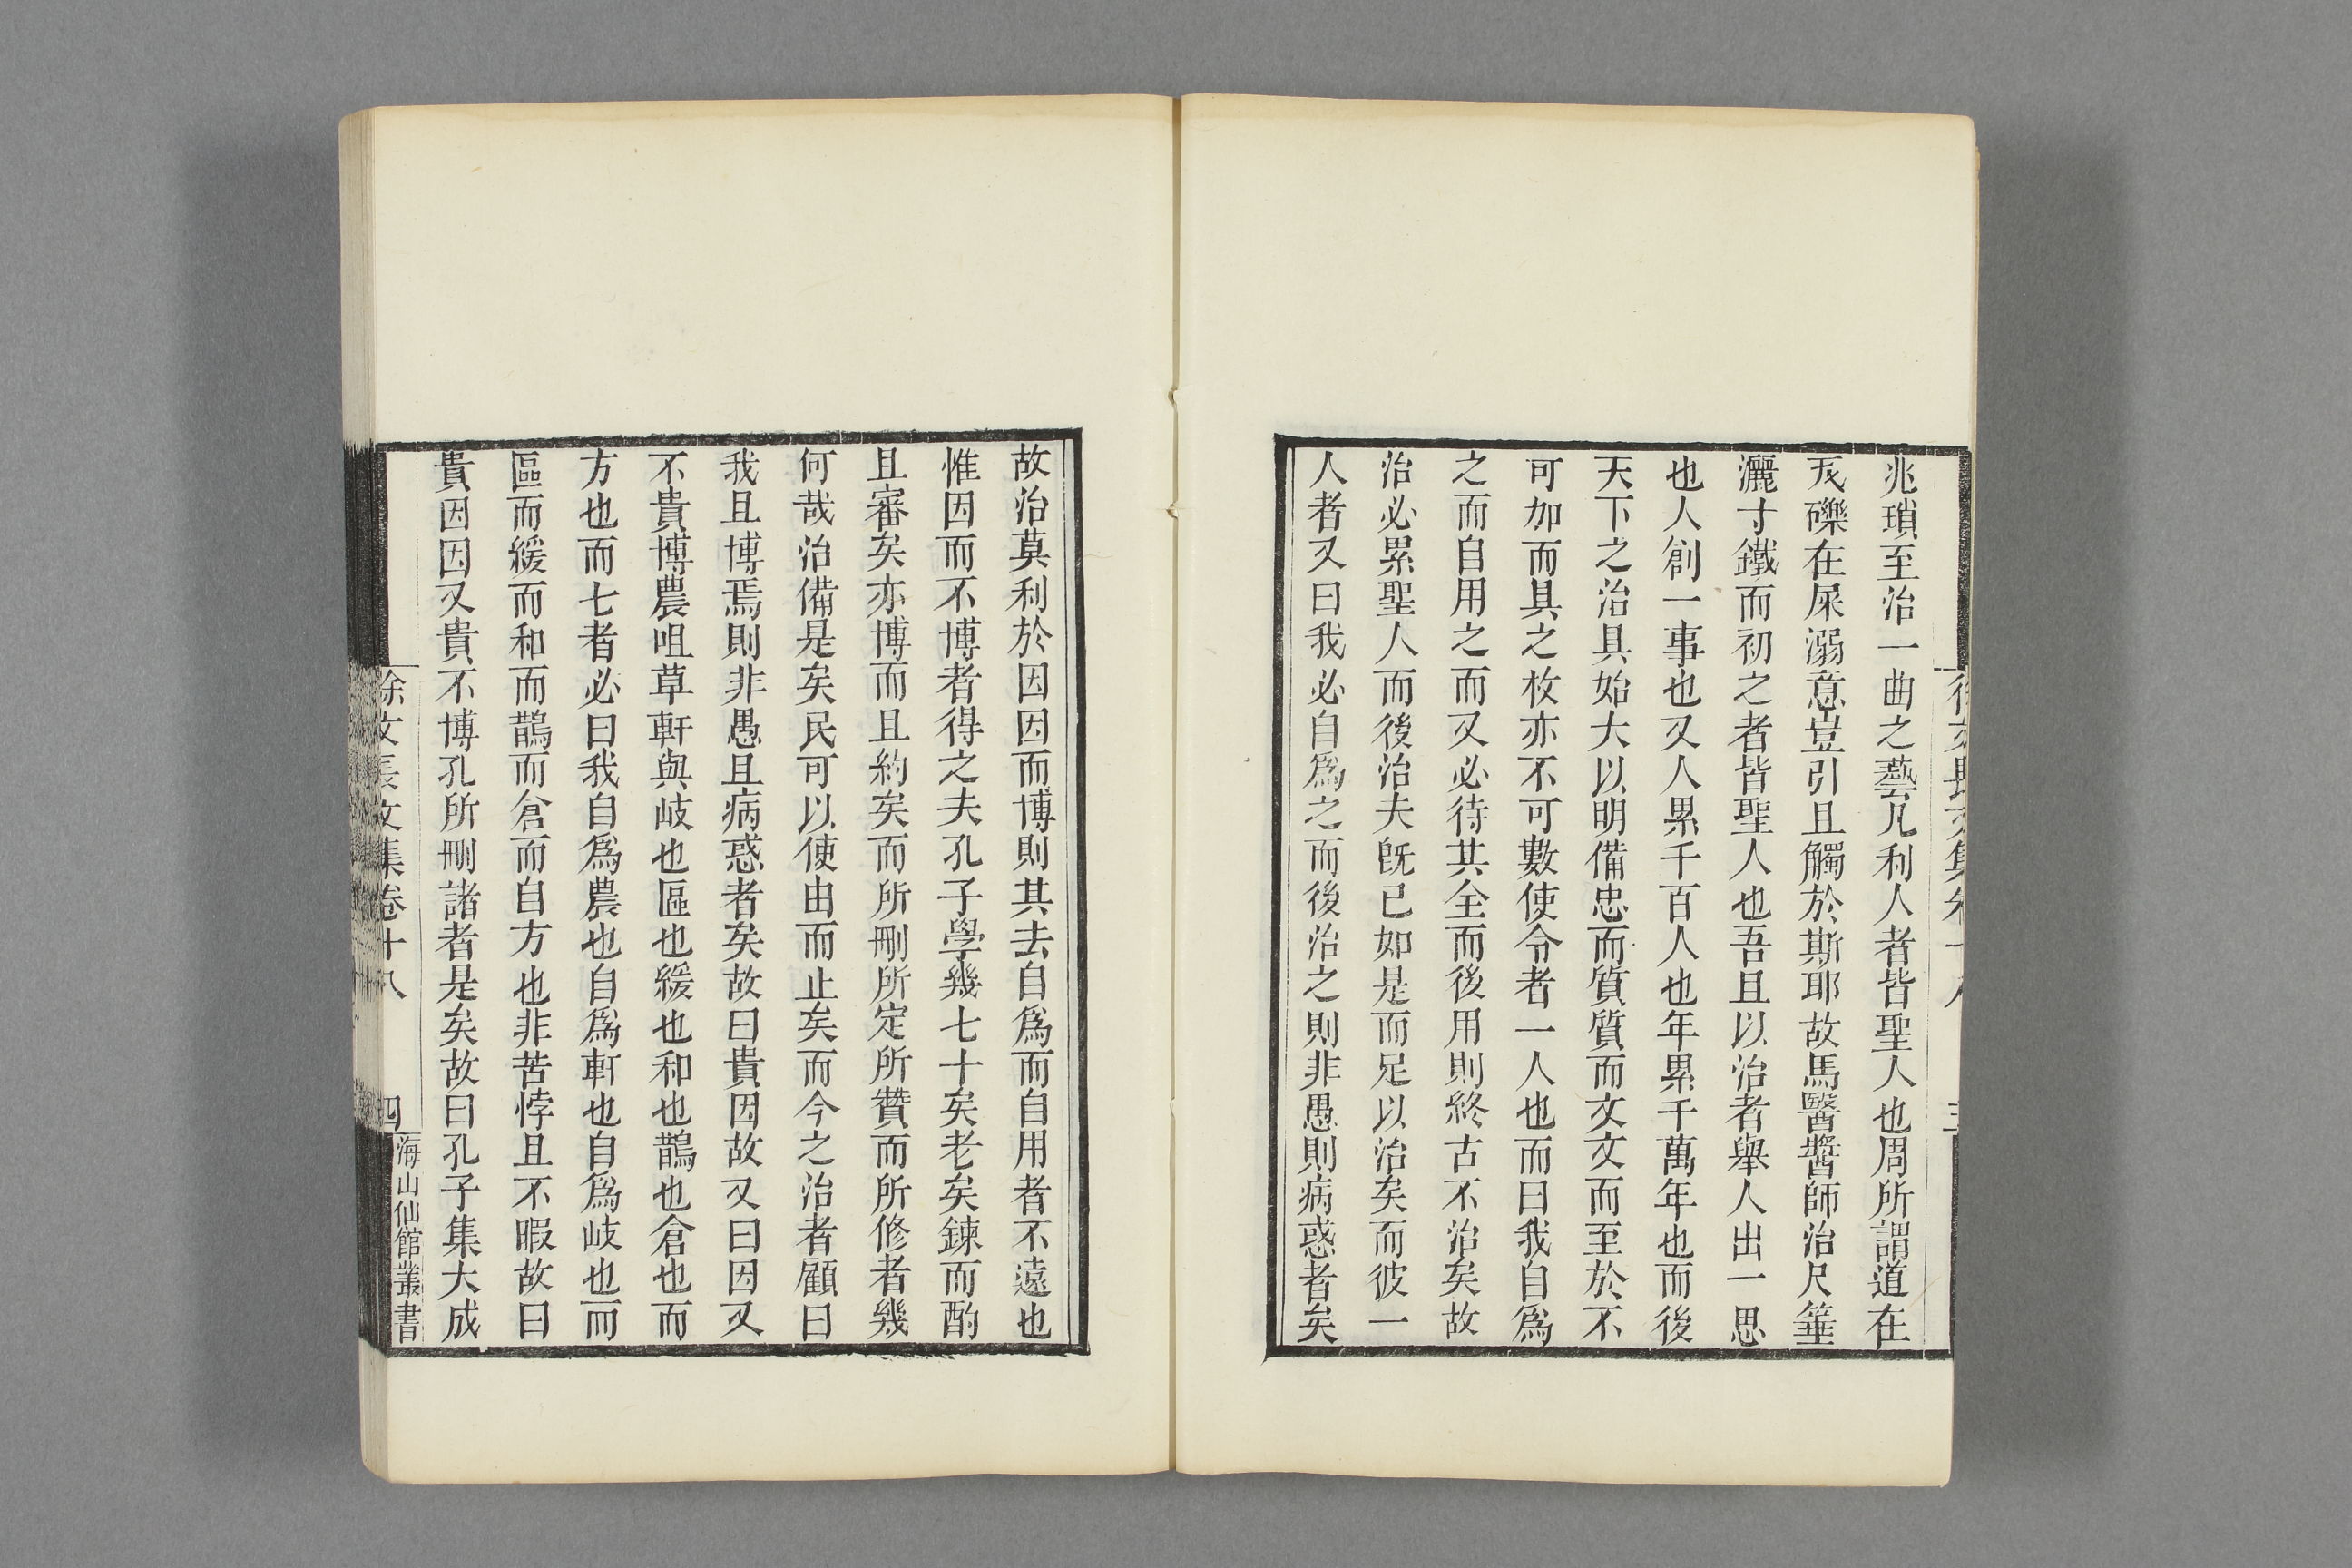 兆瑣至治一曲之藝凡利人者皆聖人也周所謂道在
瓦礫在屎溺意豈引且觸於斯耶故馬醫醬師治尺箠
灑寸鐵而初之者皆聖人也吾且以治者舉人出一思
也人創一事也又人累千百人也年累千萬年也而後
天下之治具始大以明備忠而質質而文文而至於不
可加而具之枚亦不可數使令者一人也而曰我自爲
之而自用之而又必待其全而後用則終古不治矣故
治必累聖人而後治夫旣已如是而足以治矣而彼一
人者又曰我必自爲之而後治之則非愚則病惑者矣
故治莫利於因因而博則其去自爲而自用者不遠也
惟因而不博者得之夫孔子學幾七十矣老矣鍊而酌
且審矣亦博而且約矣而所刪所定所贊而所修者幾
何哉治備是矣民可以使由而止矣而今之治者顧曰
我且博焉則非愚且病惑者矣故曰貴因故又曰因又
不貴博農咀草軒與岐也區也緩也和也鵲也倉也而
方也而七者必曰我自爲農也自爲軒也自爲岐也而
區而緩而和而鵲而倉而自方也非苦悖且不暇故曰
貴因因又貴不博孔所刪諸者是矣故曰孔子集大成
徐文長文集卷十八
四
海山仙館叢書